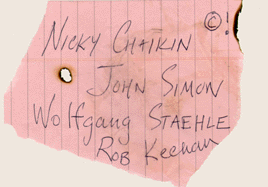 ©!
Nicky Chaikin
John Simon
Wolfgang Staehle
Rob Keenan